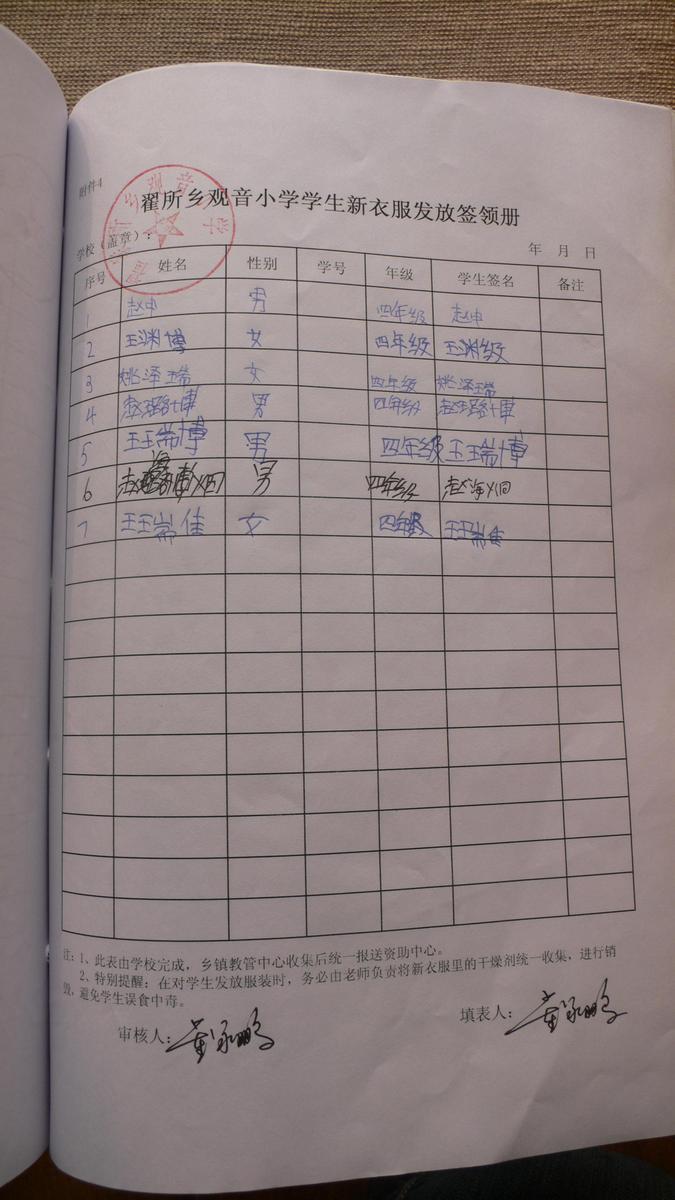 附件4
翟所乡观音小学学生新衣服发放签领册
学校（盖章）： 年 月 日
序号 姓名 性别 学号 年级 学生签名 备注
1 赵中 男 四年级 赵中
2 王渊博 女 四年级 王渊级
3 姚泽瑞 女 四年级 姚泽瑞
4 赵璐博 男 四年级 赵璐博
5 王瑞博 男 四年级 王瑞博
6 赵海炯 男 四年级 赵海炯
7 王瑞佳 女 四年级 王瑞佳
注：1、此表由学校完成，乡镇教管中心收集后统一报送资助中心。
2、特别提醒：在对学生发放服装时，务必由老师负责将新衣服里的干燥剂统一收集，进行销
毁，避免学生误食中毒。
审核人： 填表人：